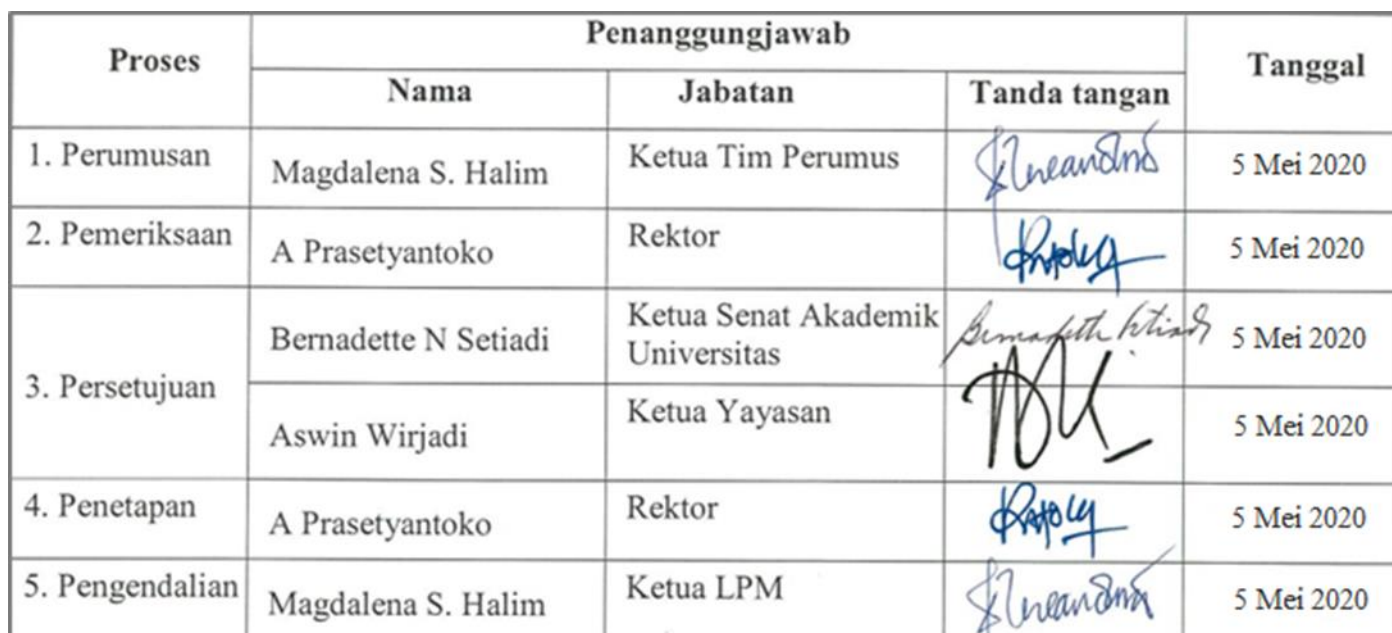 Proses
Penanggungjawab
Tanggal
Nama
Jabatan
Tanda tangan
1. Perumusan
Magdalena S. Halim
Ketua Tim Perumus
5 Mei 2020
2. Pemeriksaan
A Prasetyantoko
Rektor
5 Mei 2020
3. Persetujuan
Bernadette N Setiadi
Ketua Senat Akademik
Universitas
5 Mei 2020
Aswin Wirjadi
Ketua Yayasan
5 Mei 2020
4. Penetapan
A Prasetyantoko
Rektor
5 Mei 2020
5. Pengendalian
Magdalena S. Halim
Ketua LPM
5 Mei 2020